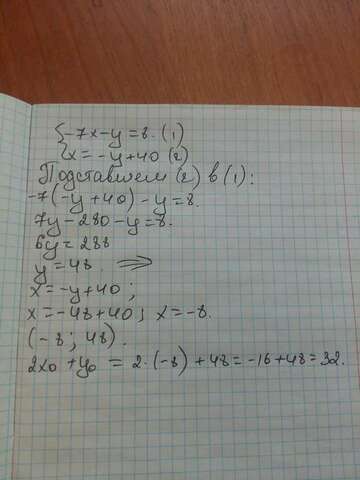 {-7x-y=8. (1)
{x=-y+40 (2)
Подставляем (2) в (1):
-7(-y+40)-y=8.
7y-280-y=8.
6y=288
y=48. ⟹
x=-y+40;
x=-48+40; x=-8.
(-8; 48).
2x₀+y₀ = 2·(-8)+48=-16+48=32.